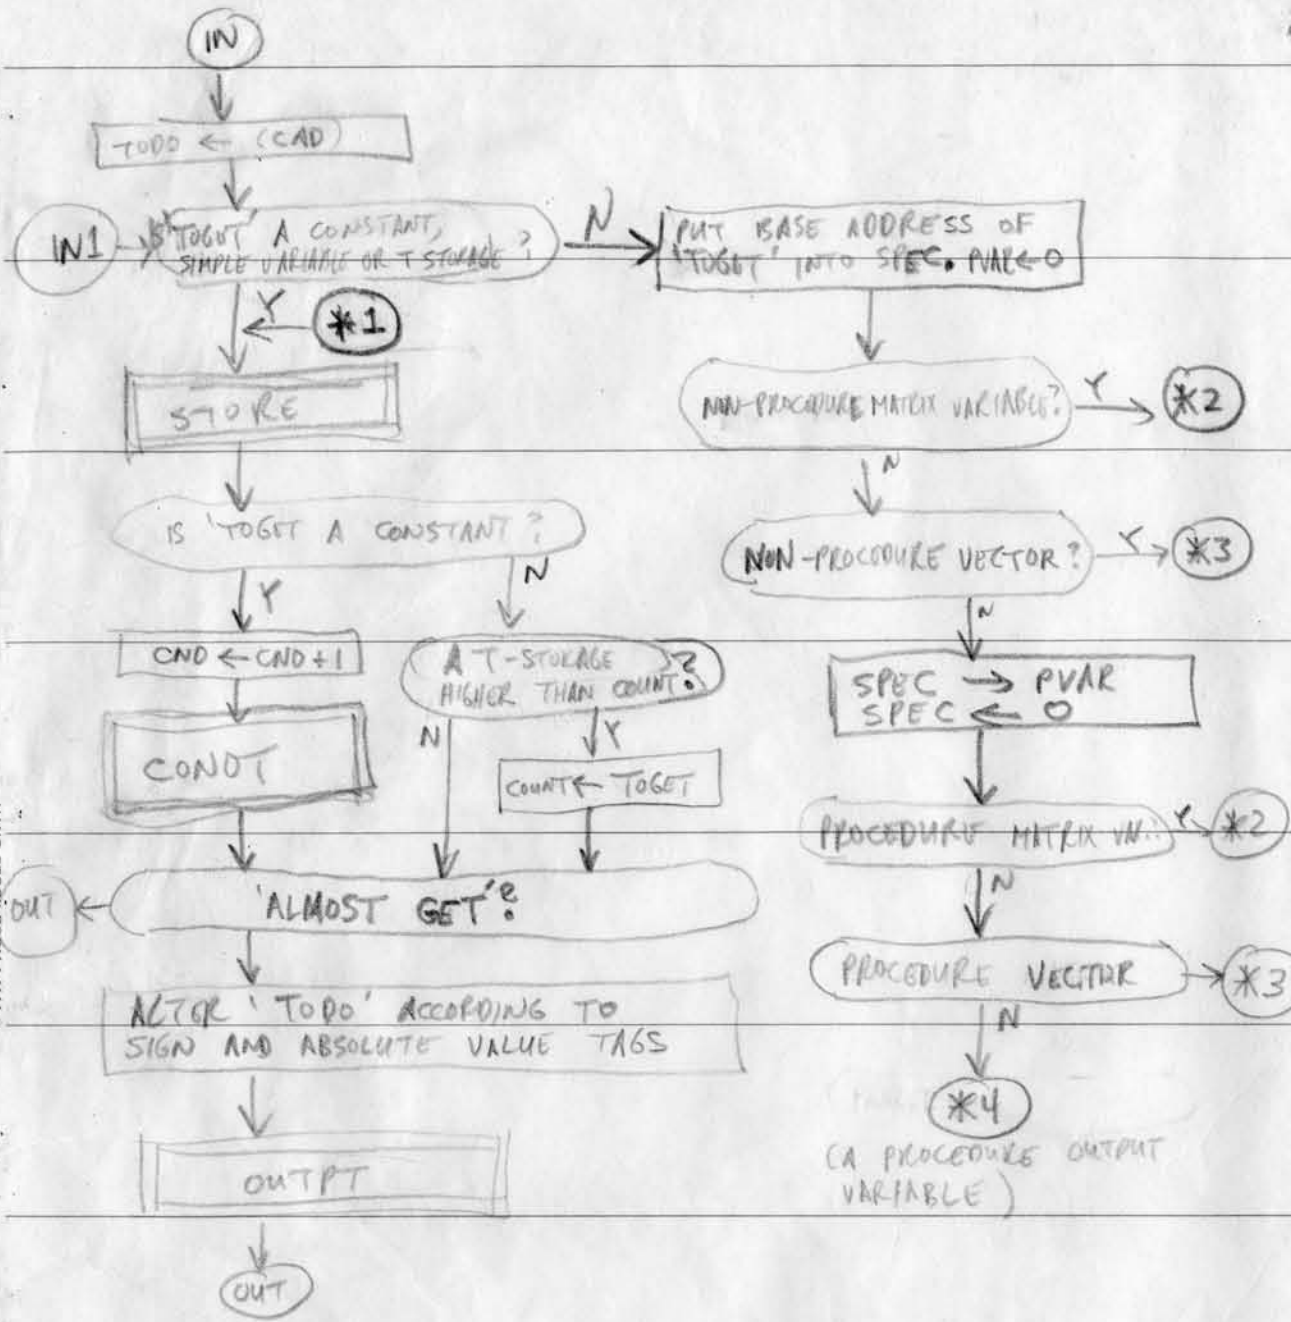 IN
TODO ← (CAD)
IN1
IS 'TOGET' A CONSTANT,
SIMPLE VARIABLE OR T STORAGE?
N
PUT BASE ADDRESS OF
'TOGET' INTO SPEC. PVAR←0
Y
*1
STORE
NON-PROCEDURE MATRIX VARIABLE?
Y
*2
N
IS 'TOGET A CONSTANT?
NON-PROCEDURE VECTOR?
Y
*3
Y
N
N
CNO ← CNO+1
A T-STORAGE
HIGHER THAN COUNT?
SPEC → PVAR
SPEC ← 0
N
Y
CONOT
COUNT← TOGET
PROCEDURE MATRIX VAR.?
Y
*2
N
OUT
'ALMOST GET'?
PROCEDURE VECTOR
*3
ALTER 'TODO' ACCORDING TO
SIGN AND ABSOLUTE VALUE TAGS
N
*4
(A PROCEDURE OUTPUT
VARIABLE)
OUTPT
OUT